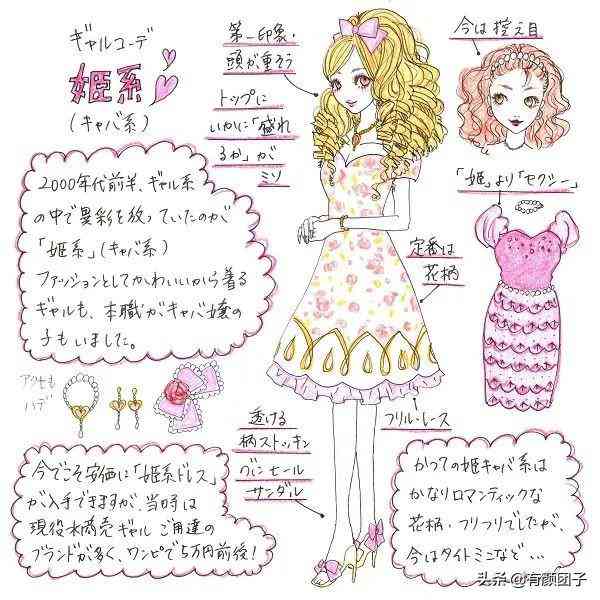 ギャルコーデ
姫系
(キャバ系)
2000年代前半、ギャル系
の中で異彩を放っていたのが
「姫系」(キャバ系)
ファッションとしてかわいいから着る
ギャルも、本職がキャバ嬢の
子もいました。
第一印象・
頭が重そう
トップに
いかに「盛れ
るか」が
ミソ
今は控え目
「姫」より「セクシー」
定番は
花柄
アクセも
ハデ
透ける
柄ストッキン
グにヒール
サンダル
フリル・レース
今でこそ安価に「姫系ドレス」
が入手できますが、当時は
現役水商売ギャルご用達の
ブランドが多く、ワンピで5万円前後!
かつての姫キャバ系は
かなりロマンティックな
花柄・フリフリでしたが、
今はタイトミニなど…
头条@有颜团子